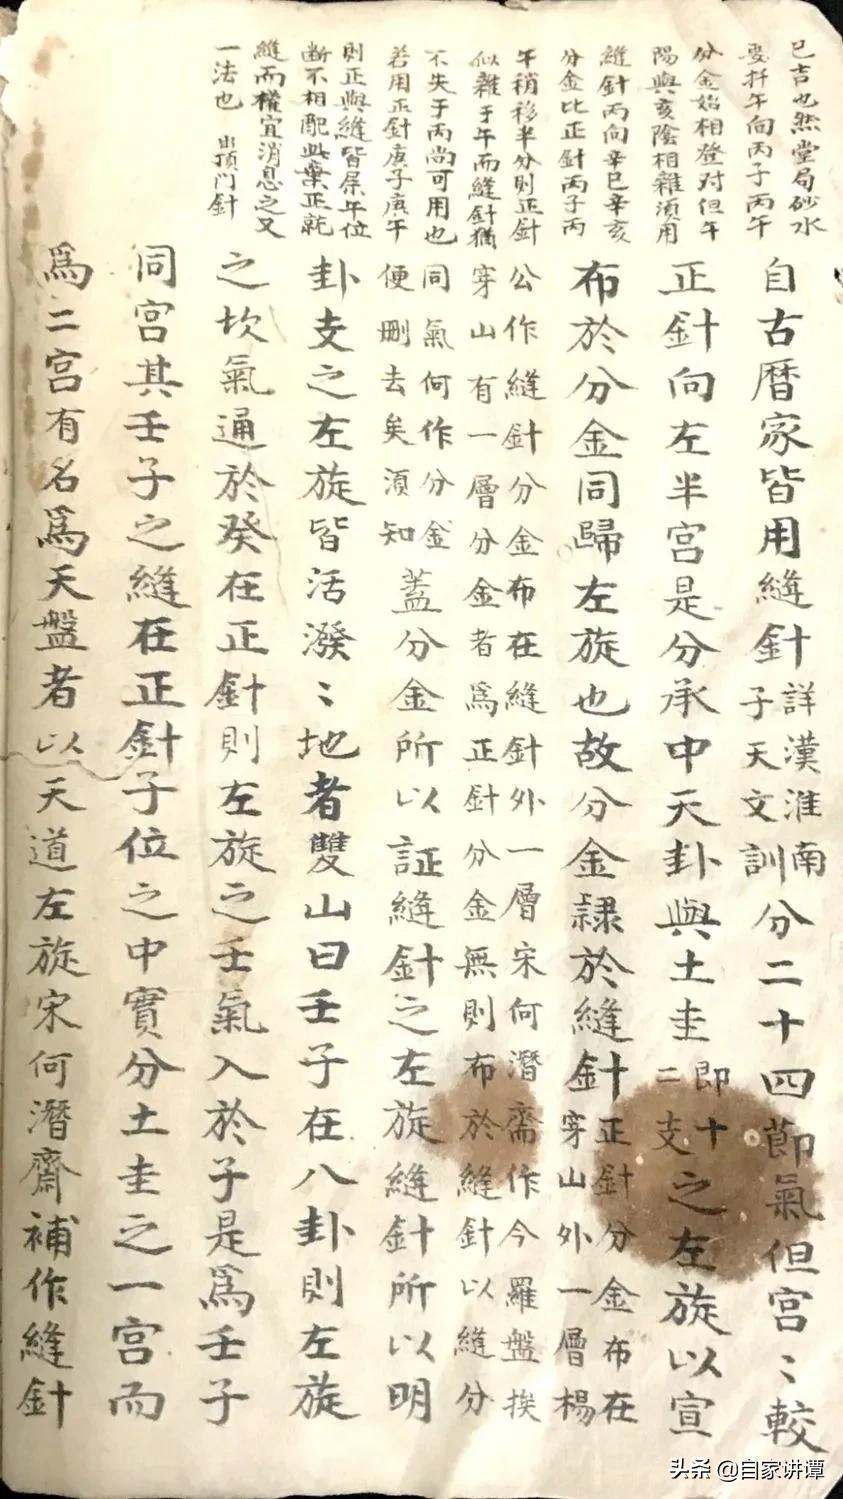 巳吉也然堂局砂水
要扦午向丙子丙午
分金始相登对但午
陽與亥陰相雜須用
縫針丙向辛巳辛亥
分金比正針丙子丙
午稍移半分則正針
似雜于午而縫針猶
不失于丙尚可用也
若用正針庚子庚午
則正與縫皆午位
断不相配此棄正就
縫而權宜消息之又
一法也 出頂門針
自古曆家皆用縫針詳漢淮南子天文訓分二十四節氣但宮〻較
正針向左半宮是分承中天卦與土圭即十二支之左旋以宣
布於分金同歸左旋也故分金隸於縫針正針分金布在穿山外一層楊
公作縫針分金布在縫針外一層宋何潛齋作今羅盤挨
穿山有一層分金者為正針分金無則布於縫針以縫分
同氣何作分金便刪去矣須知蓋分金所以証縫針之左旋縫針所以明
卦支之左旋皆活潑〻地者雙山曰壬子在八卦則左旋
之坎氣通於癸在正針則左旋之壬氣入於子是爲壬子
同宮其壬子之縫在正針子位之中實分土圭之一宮而
爲二宮有名爲天盤者以天道左旋宋何潛齋補作縫針
头条 @自家讲谭